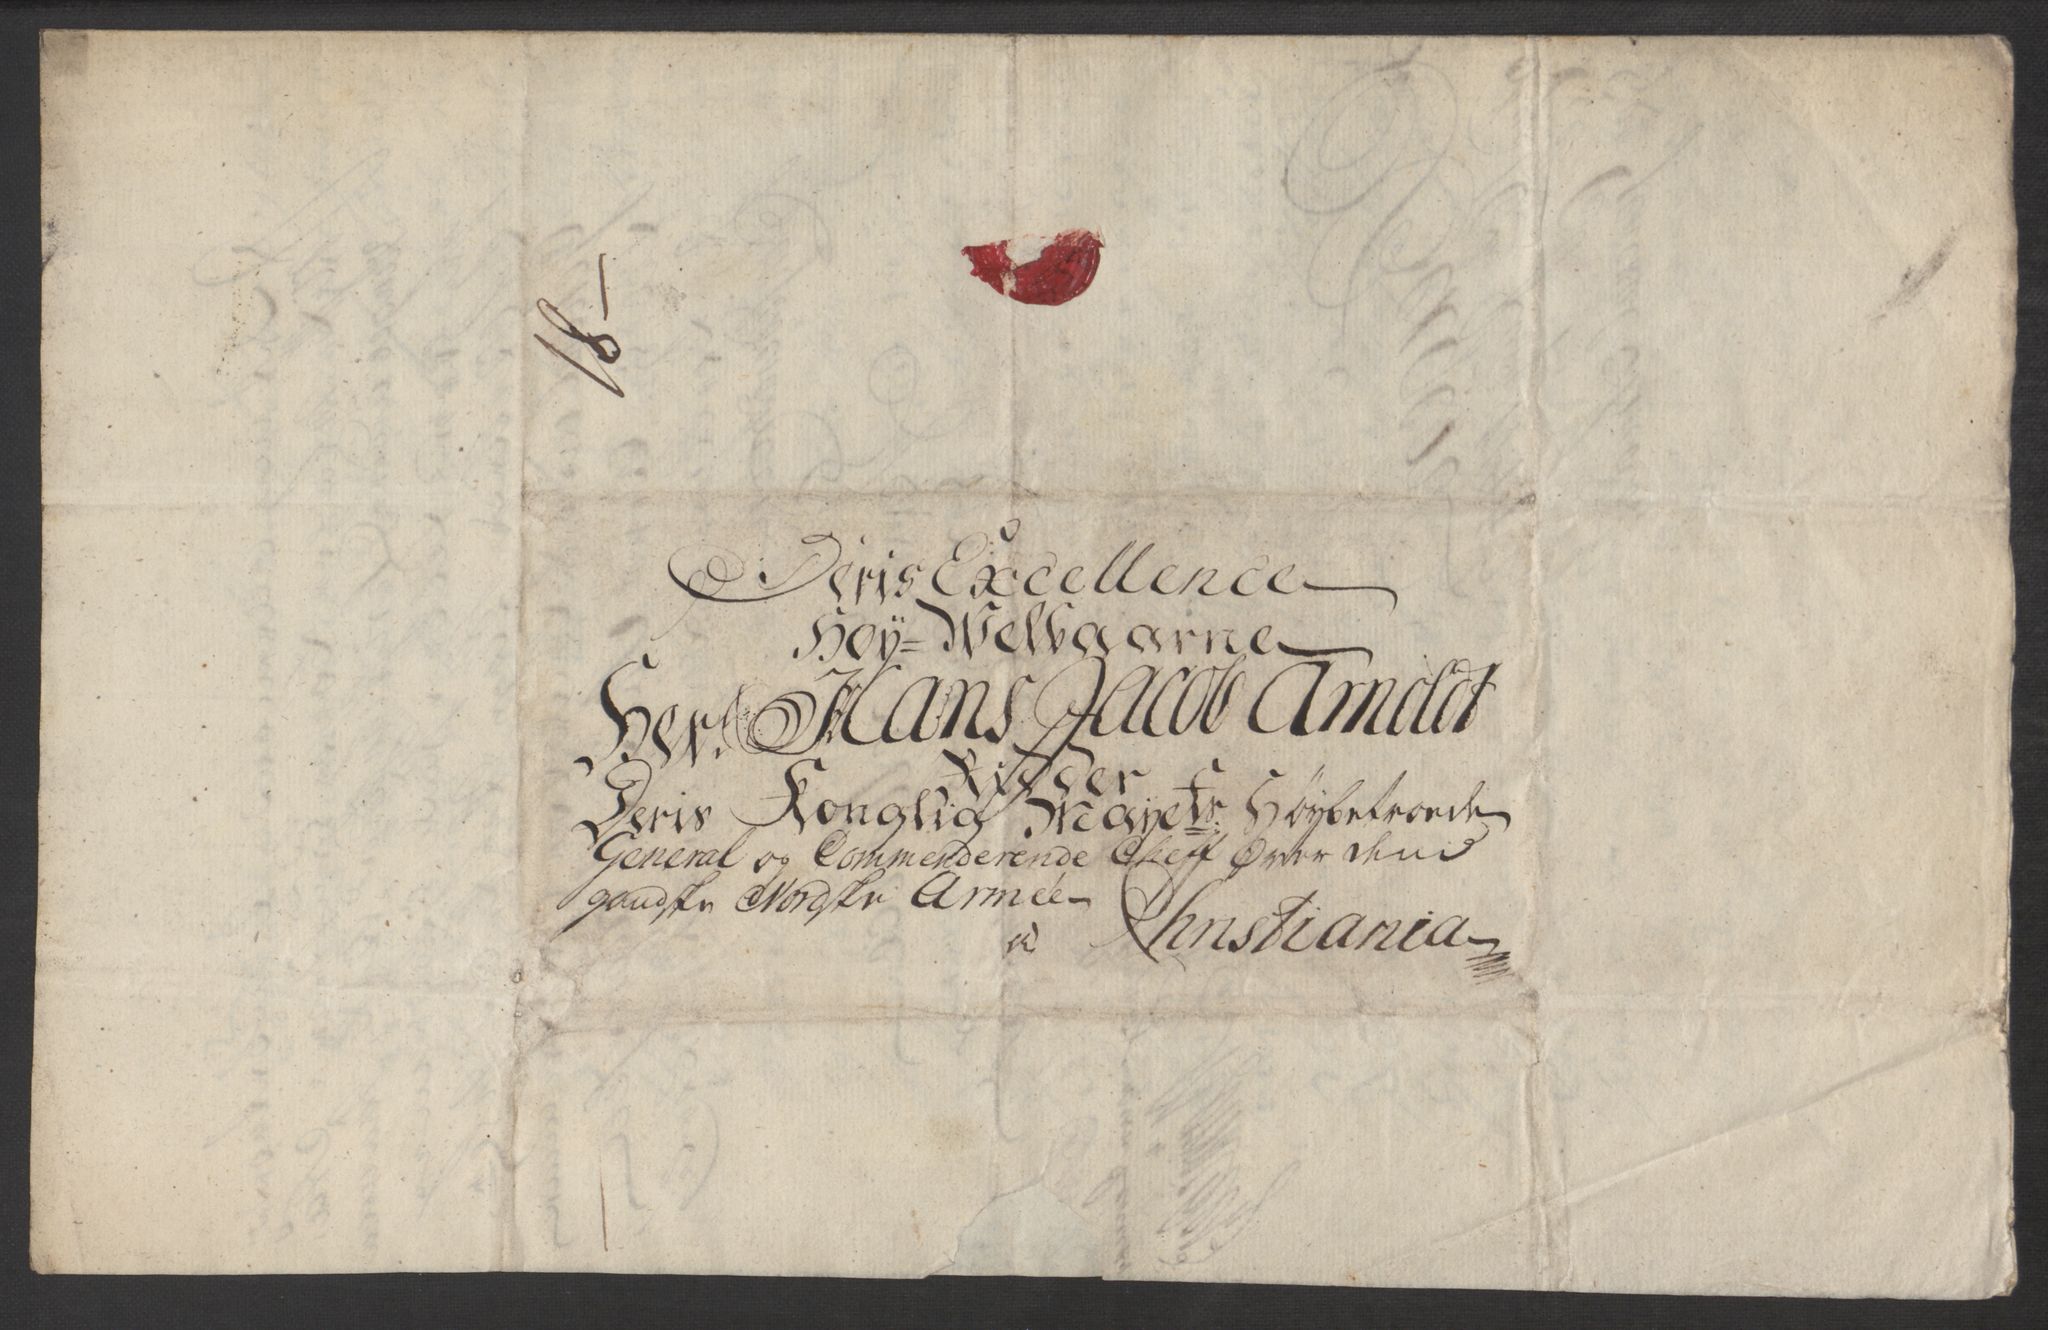 18 –
Deris Excellence
Höÿ=Welbaarne
Herr Hans Jacob Arnoldt
Ridder
Deris Konglig Mayets: Höÿbetroede
General og Commenderende Cheff Over den
gandske Nordske Armée
a Christiania